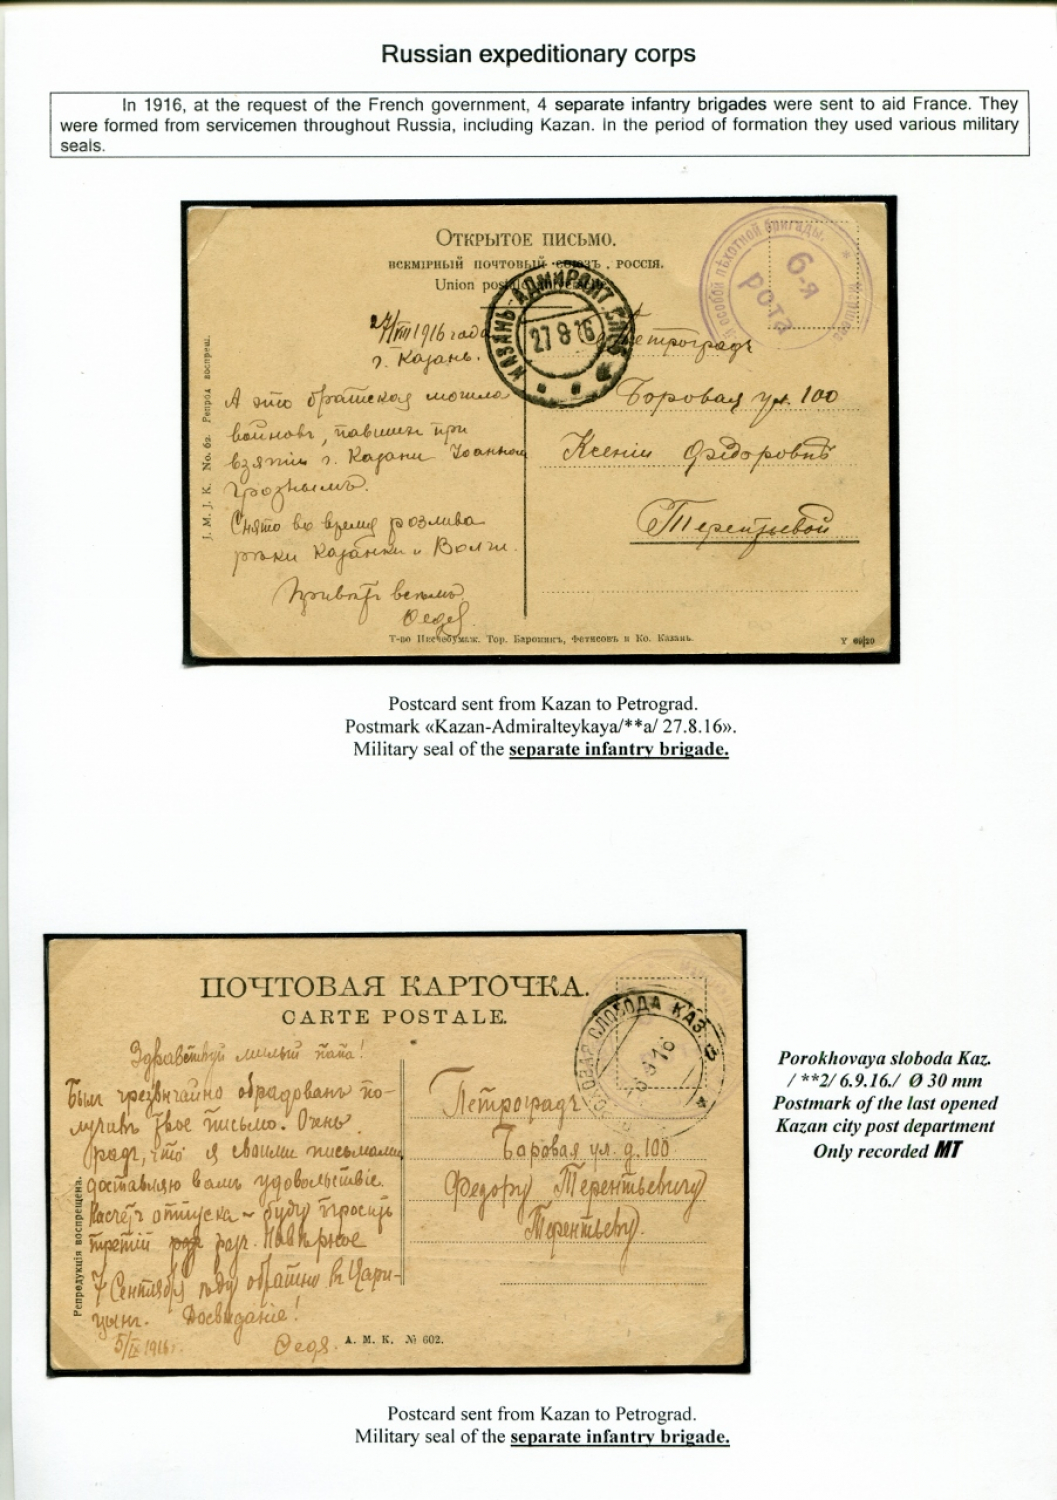 Russian expeditionary corps
In 1916, at the request of the French government, 4 separate infantry brigades were sent to aid France. They
were formed from servicemen throughout Russia, including Kazan. In the period of formation they used various military
seals.
Открытое письмо.
всемірный почтовый союзъ, россія.
Union postale
особой пѣхотной бригады.
6-я
рота
КАЗАНЬ АДМИРАЛТ. СЛОБ.
27 8 16
27/VIII 1916 года
г. Казань.
Петроградъ
Боровая ул. 100
Ксеніи Федоровнѣ
Терентьевой
А это братская могила
воиновъ, павшихъ при
взятіи г. Казани Іоанномъ
Грознымъ.
Снято во время розлива
рѣки Казанки и Волги.
Привѣтъ всѣмъ.
Федя.
J. M. J. K. No. 62. Репрод воспрещ.
Т-во Писчебумаж. Тор. Баронинъ, Фетисовъ и Ко. Казань.
Postcard sent from Kazan to Petrograd.
Postmark «Kazan-Admiralteykaya/**a/ 27.8.16».
Military seal of the separate infantry brigade.
ПОЧТОВАЯ КАРТОЧКА.
CARTE POSTALE.
СЛОБОДА КАЗ.
6 9 16
Здравствуй милый папа!
Былъ чрезвычайно обрадованъ по-
лучивъ твое письмо. Очень
радъ, что я своими письмами
доставляю вамъ удовольствіе.
Насчетъ отпуска – буду просить
третій раз. Навѣрное
7 Сентября поѣду обратно въ Цари-
цынъ. Досвиданіе!
5/IX 1916 г. Федя.
Петроградъ
Боровая ул. д. 100
Федору Терентьевичу
Терентьеву.
Репродукція воспрещена.
А. М. К. № 602.
Porokhovaya sloboda Kaz.
/ **2/ 6.9.16./ Ø 30 mm
Postmark of the last opened
Kazan city post department
Only recorded MT
Postcard sent from Kazan to Petrograd.
Military seal of the separate infantry brigade.